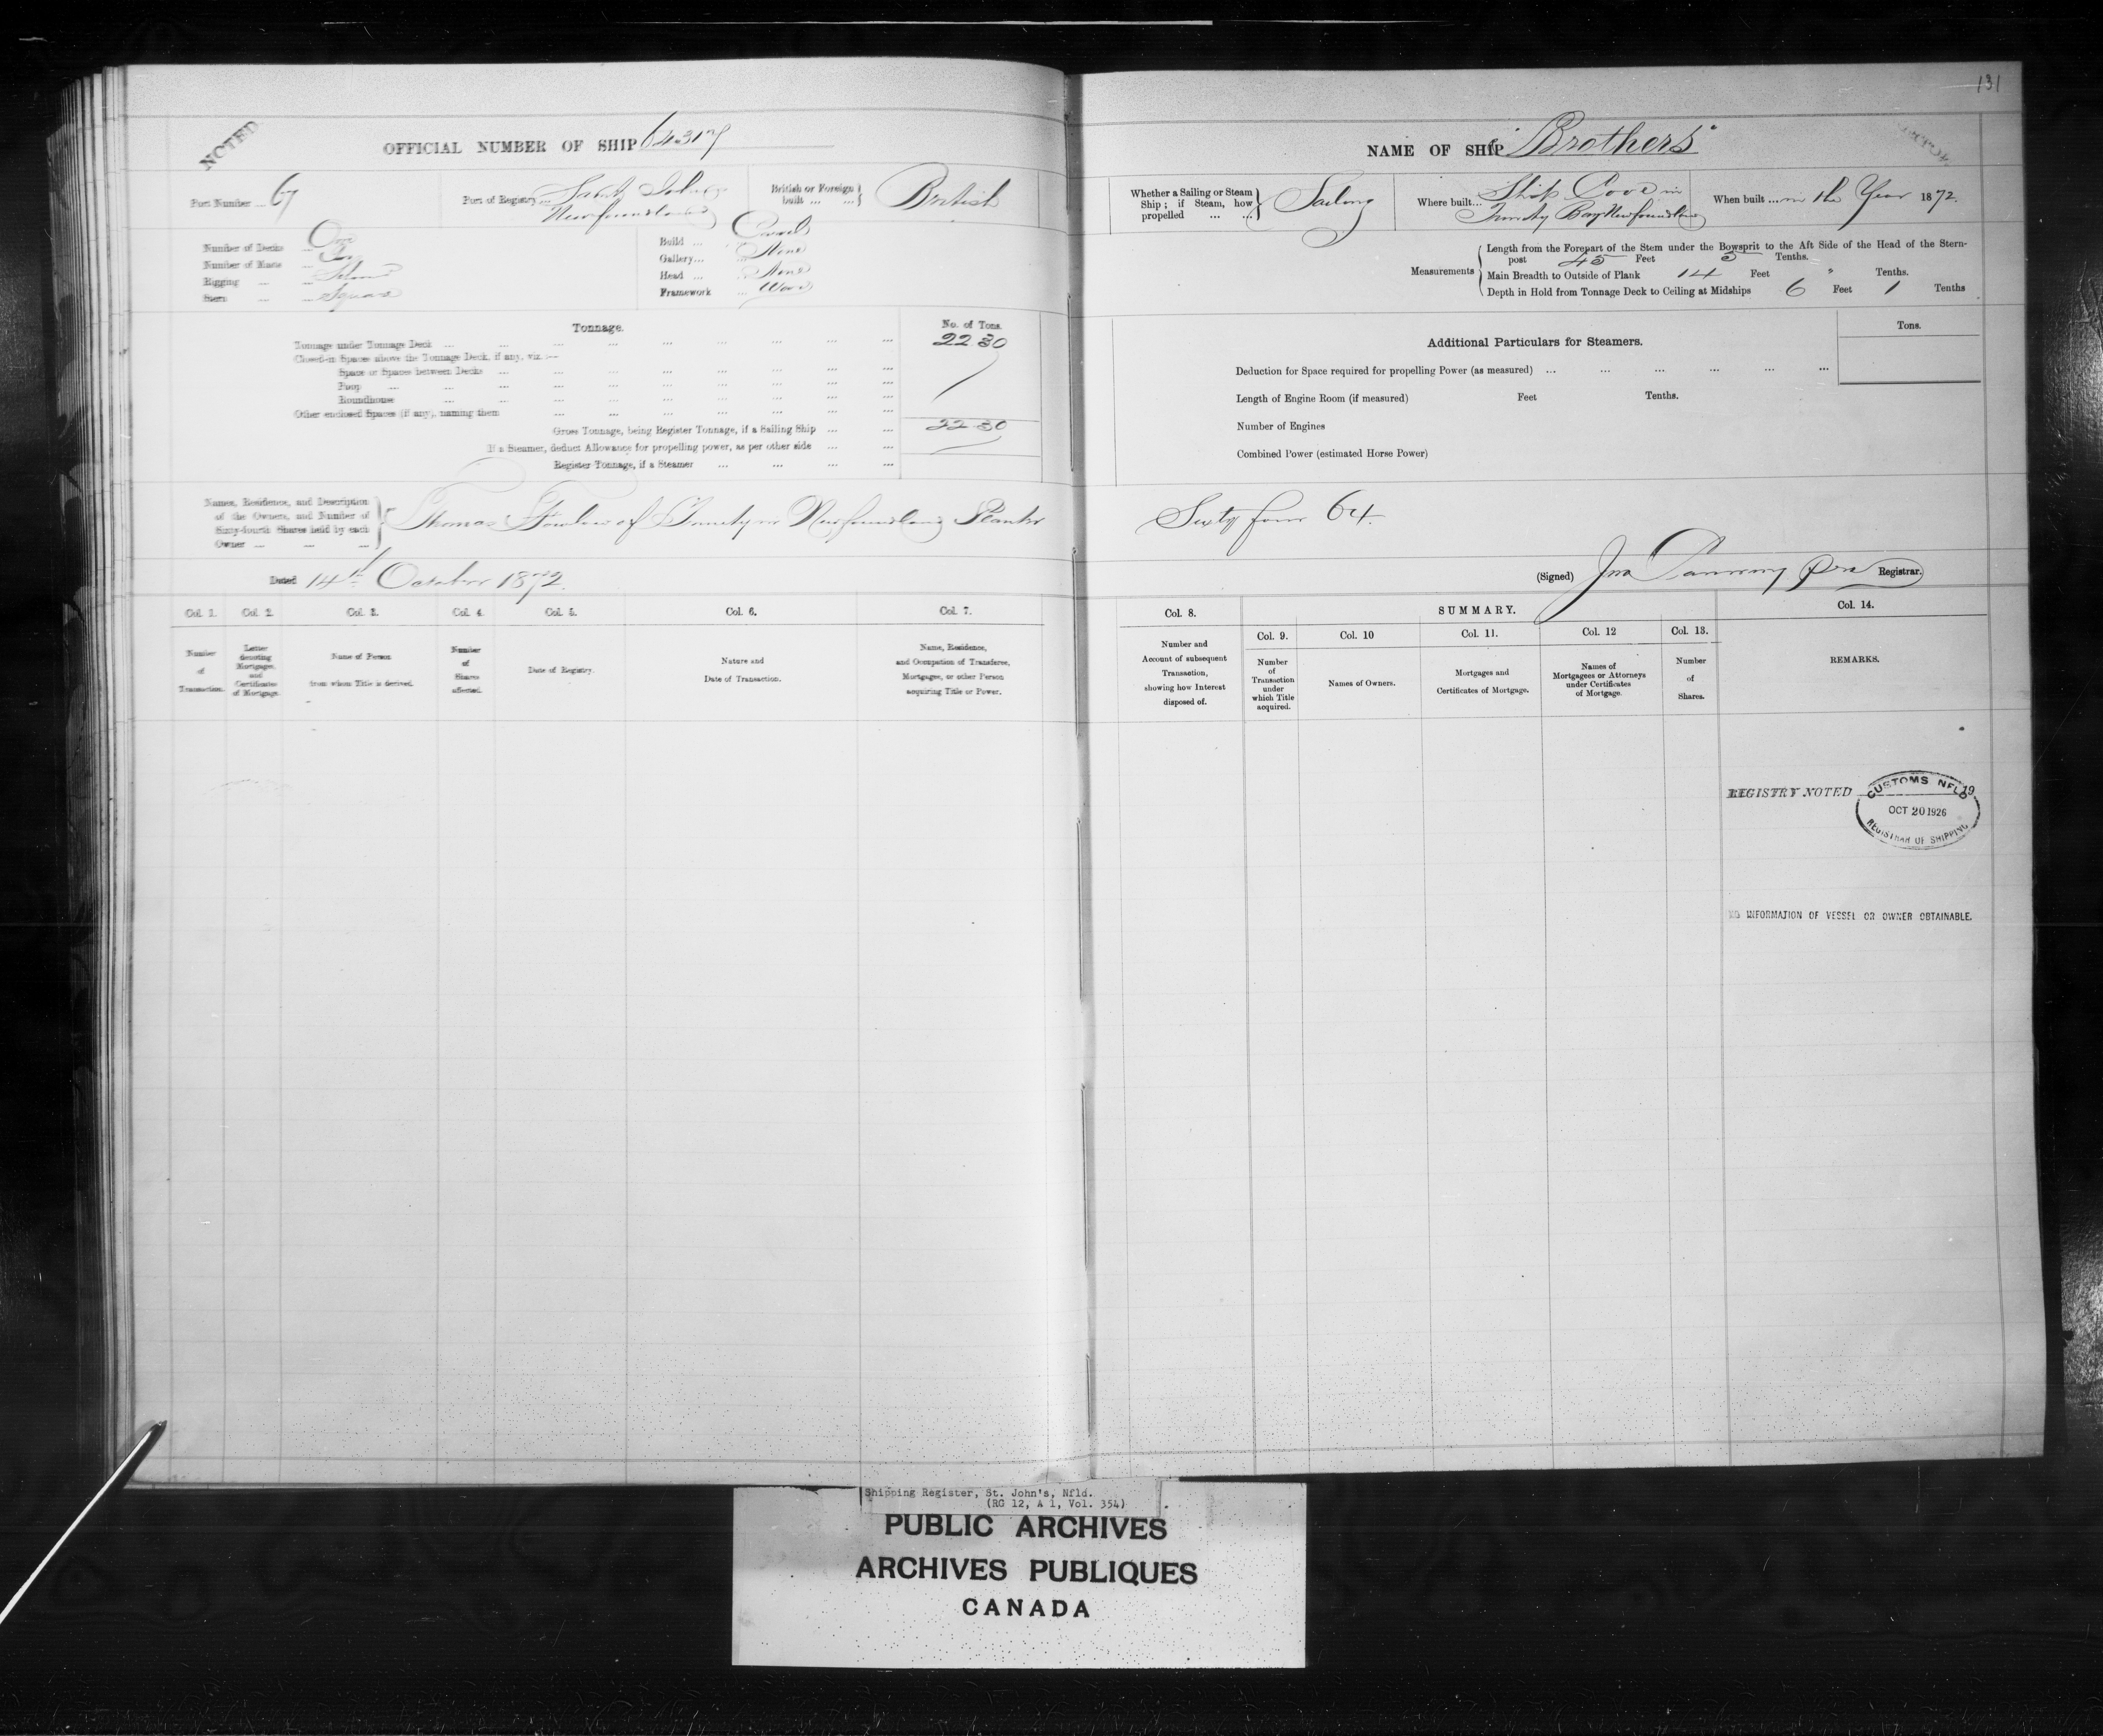 131
NOTED
OFFICIAL NUMBER OF SHIP 64317
NAME OF SHIP "Brothers"
Port Number ... 67
Port of Registry ... Saint Johns
Newfoundland
British or Foreign
built ... ...
British
Whether a Sailing or Steam
Ship; if Steam, how
propelled ... ...
Sailing
Where built... Ship Cove in
Trinity Bay Newfoundland
When built ... in the Year 1872.
Number of Decks ... One
Number of Masts ... Two
Rigging ... ...
Stern ... ... Square
Build ...
Gallery... None
Head ... None
Framework ... Wood
Measurements
Length from the Forepart of the Stem under the Bowsprit to the Aft Side of the Head of the Stern-
post 45 Feet 5 Tenths.
Main Breadth to Outside of Plank 14 Feet " Tenths.
Depth in Hold from Tonnage Deck to Ceiling at Midships 6 Feet 1 Tenths
Tonnage.
No. of Tons.
Tonnage under Tonnage Deck ... 22.30
Closed-in Spaces above the Tonnage Deck, if any, viz.:—
Space or Spaces between Decks ...
Poop ...
Roundhouse ...
Other enclosed Spaces (if any), naming them ...
Gross Tonnage, being Register Tonnage, if a Sailing Ship ... 22.30
If a Steamer, deduct Allowance for propelling power, as per other side ...
Register Tonnage, if a Steamer ...
Tons.
Additional Particulars for Steamers.
Deduction for Space required for propelling Power (as measured) ...
Length of Engine Room (if measured) Feet Tenths.
Number of Engines
Combined Power (estimated Horse Power)
Names, Residence, and Description
of the Owners, and Number of
Sixty-fourth Shares held by each
Owner ... ... ...
Thomas Fowlow of Trinity in Newfoundland Planter
Sixty four 64.
Dated 14th October 1872.
(Signed) Jno Registrar.
Col. 1. Col. 2. Col. 3. Col. 4. Col. 5. Col. 6. Col. 7.
Number
of
Transaction.
Letter
denoting
Mortgages,
and
Certificates
of Mortgage.
Name of Person
from whom Title is derived.
Number
of
Shares
affected.
Date of Registry.
Nature and
Date of Transaction.
Name, Residence,
and Occupation of Transferee,
Mortgagee, or other Person
acquiring Title or Power.
Col. 8.
SUMMARY.
Col. 14.
Col. 9. Col. 10 Col. 11. Col. 12 Col. 13.
Number and
Account of subsequent
Transaction,
showing how Interest
disposed of.
Number
of
Transaction
under
which Title
acquired.
Names of Owners.
Mortgages and
Certificates of Mortgage.
Names of
Mortgagees or Attorneys
under Certificates
of Mortgage.
Number
of
Shares.
REMARKS.
REGISTRY NOTED 19
CUSTOMS NFLD
OCT 20 1926
REGISTRAR OF SHIPPING
NO INFORMATION OF VESSEL OR OWNER OBTAINABLE.
Shipping Register, St. John's, Nfld.
(RG 12, A 1, Vol. 354)
PUBLIC ARCHIVES
ARCHIVES PUBLIQUES
CANADA